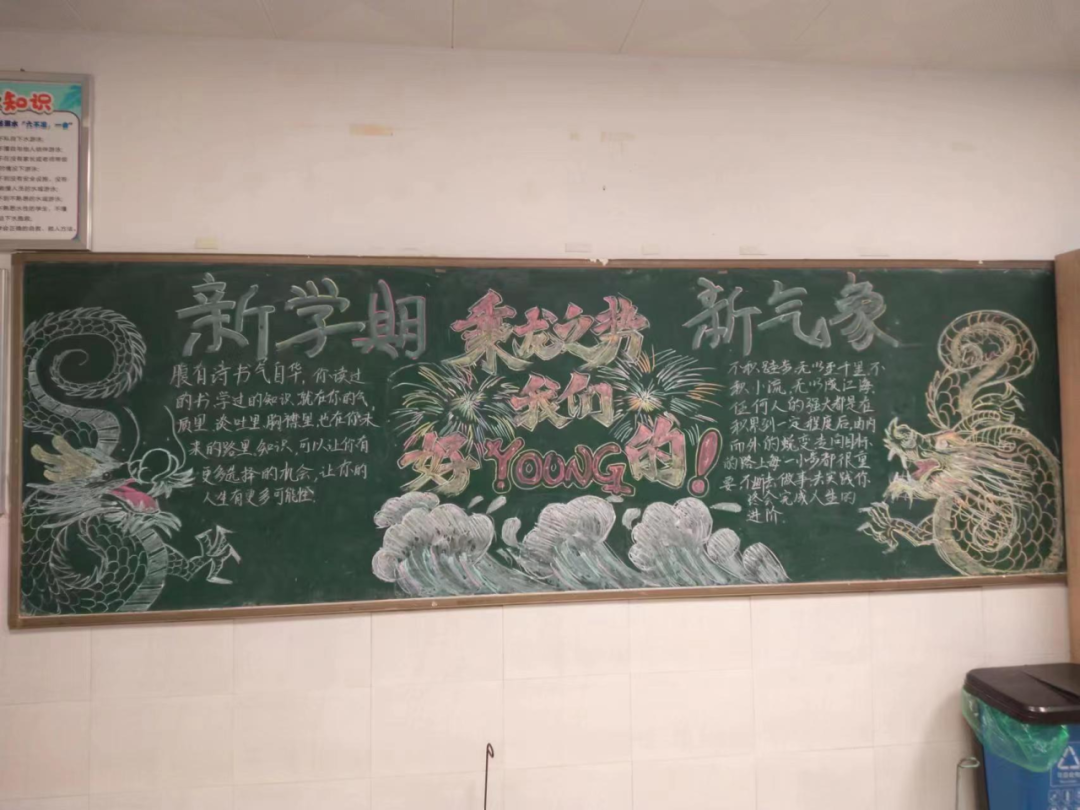 知识
新学期
乘龙之势
新气象
我们
好YOUNG的！
腹有诗书气自华，你读过
的书学过的知识就在你的气
质里谈吐里胸襟里也在你未
来的路里知识可以让你有
更多选择的机会，让你的
人生有更多可能性
不积跬步无以至千里不
积小流，无以成江海
任何人的强大都是在
积累到一定程度后，由内
而外的蜕变走向目标
的路上每一小步都很重
要，不断去做事去实践你
终会完成人生的
进阶.